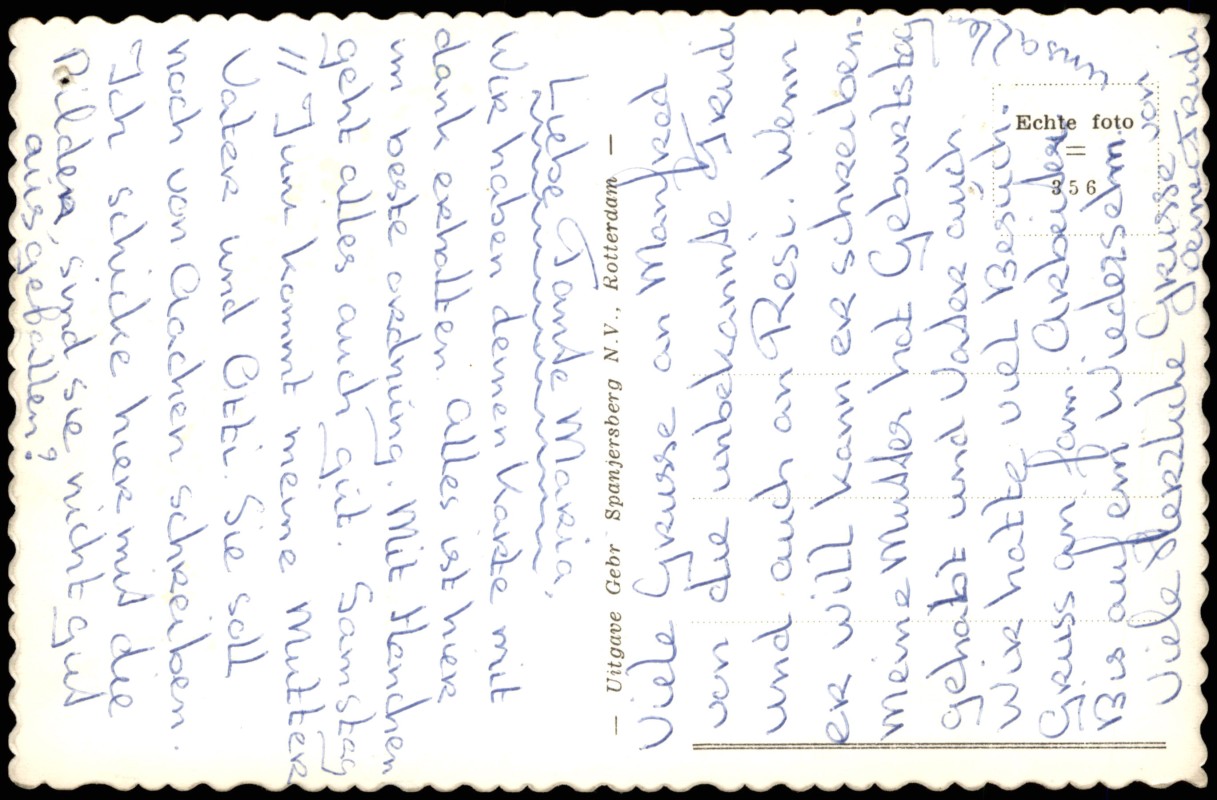 Liebe Tante Maria,
Wir haben deinen Karte mit
dank erhalten. Alles ist hier
im beste ordnung. Mit Henchen
geht alles auch gut. Samstag
11 Juni kommt meine Mutter
Vater und Otti. Sie soll
noch von Aachen schreiben.
Ich schicke hier mit die
Bilder, sind sie nicht gut
ausgefallen?
— Uitgave Gebr Spanjersberg N.V., Rotterdam —
Viele Grusse an Manfred
von die unbekannte Freudi
und auch an Resi. Wenn
er will kann er schreiben.
meine Mutter hat Geburtstag
gehabt und Vater auch.
Wir hatte viel Besuch.
Gruss an fam.
Bis auf ein Wiedersehn.
Viele Herzliche Grusse von
uns alle
Echte foto
=
356